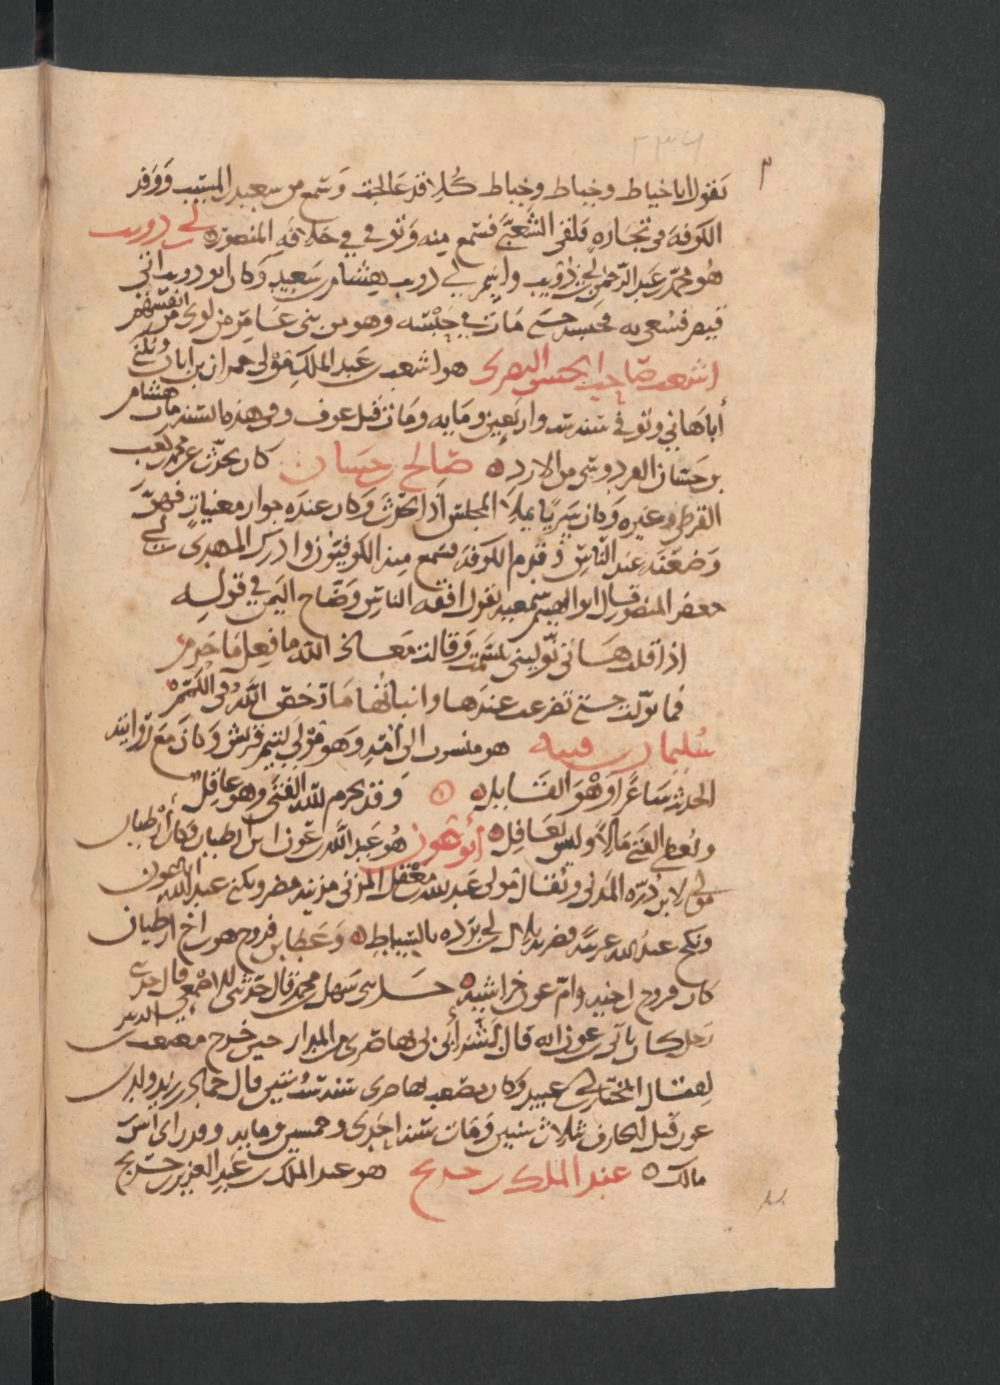 يقول انا خياط وخباط وخباط كلا قد عالجت وسمع من سعيد بن المسيب ووفد
الكوفة في تجارة فلقي الشعبي فسمع منه وتوفي في خلافة المنصور ابن ابي ذويب
هو محمد بن عبد الرحمن بن ابي ذويب واسم ابي ذويب هشام بن سعيد وكان ابو ذويب اتى
قيصر فسعى به فحبسه حتى مات في حبسه وهو من بني عامر بن لوي من انفسهم
اشعث صاحب الحسن البصري هو اشعث بن عبد الملك مولى حمران بن ابان ويكنى
أبا هاني وتوفي في سنة ست واربعين ومايه ومات قبل عوف وفي هذه السنة مات هشام
بن حسان القردوسي من الازد صالح بن حسان كان يحدث عن محمد بن كعب
القرظي وغيره وكان سريا يملا المجلس اذا تحدث وكان عنده جوار مغنيات فهن
وضعنه عند الناس وقدم الكوفة فسمع منه الكوفيون وادرك المهدي بن ابي
جعفر المنصور قال ابو الهيثم سمعته يقول افقه الناس وضاح اليمن في قوله
اذا قلت هاتي نوليني تبسمت وقالت معاذ الله من فعل ما حرم
فما نولت حتى تضرعت عندها وانباتها ما رخص الله في اللمم
سليمن بن قتة هو منسوب الى أمه وهو مولى لتيم قريش وكان مع روايته
الحديث شاعرا وهو القايل وقد يحرم الله الفتى وهو عاقل
ويعطي الفتى مالا وليس بعاقل أبو عون هو عبد الله بن عون بن ارطبان وكان ارطبان
مولى لابن درة المدني ويقال مولى عبد الله بن مغفل المزني مزينة مضر ويكنى عبد الله ابا عون
ونكح عبد الله عربية فضربه بلال بن ابي بردة بالسياط وعطا بن فروخ هو بن اخ ارطبان
كان فروخ اخيه وام عون خراسية حدثني سهل بن محمد قال حدثني الاصمعي قال حدثني
رجل كان ياتي ابن عون انه قال بشر أبي بي بها صرى من المدار حين خرج مصعب
لقتال المختار بن ابي عبيد وكان مصعب بها صرى سنة ست وستين قال حماد بن زيد ولد ابن
عون قبل الجارف بثلاث سنين ومات سنة احدى وخمسين ومايه وقد راى انس بن
مالك عبد الملك بن جريج هو عبد الملك بن عبد العزيز بن جريج